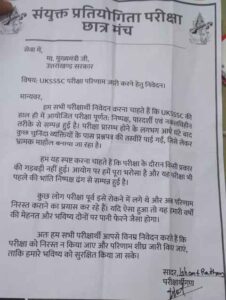 संयुक्त प्रतियोगिता परीक्षा
छात्र मंच
सेवा में,
मा. मुख्यमंत्री जी,
उत्तराखण्ड सरकार
विषय: UKSSSC परीक्षा परिणाम जारी करने हेतु निवेदन।
मान्यवर,
हम सभी परीक्षार्थी निवेदन करना चाहते हैं कि UKSSSC की
हाल ही में आयोजित परीक्षा पूर्णतः निष्पक्ष, पारदर्शी एवं नकलविहीन
तरीके से सम्पन्न हुई है। परीक्षा प्रारम्भ होने के लगभग आधे घंटे बाद
कुछ चुनिंदा व्यक्तियों के पास प्रश्नपत्र की तस्वीरें पाई गईं, जिसे लेकर
भ्रामक माहौल बनाया जा रहा है।
हम यह स्पष्ट करना चाहते हैं कि परीक्षा के दौरान किसी प्रकार
की गड़बड़ी नहीं हुई। आयोग पर हमें पूरा भरोसा है और यह परीक्षा भी
पहले की भांति निष्पक्ष ढंग से सम्पन्न हुई है।
कुछ लोग परीक्षा पूर्व इसे रोकने में लगे थे और अब परिणाम
निरस्त कराने का प्रयास कर रहे हैं। यदि ऐसा हुआ तो यह हमारी वर्षों
की मेहनत और भविष्य दोनों पर पानी फेरने जैसा होगा।
अतः हम सभी परीक्षार्थी आपसे विनम्र निवेदन करते हैं कि
परीक्षा को निरस्त न किया जाए और परिणाम शीघ्र जारी किए जाएं,
ताकि हमारे भविष्य को सुरक्षित किया जा सके।
सादर,
परीक्षार्थीगण